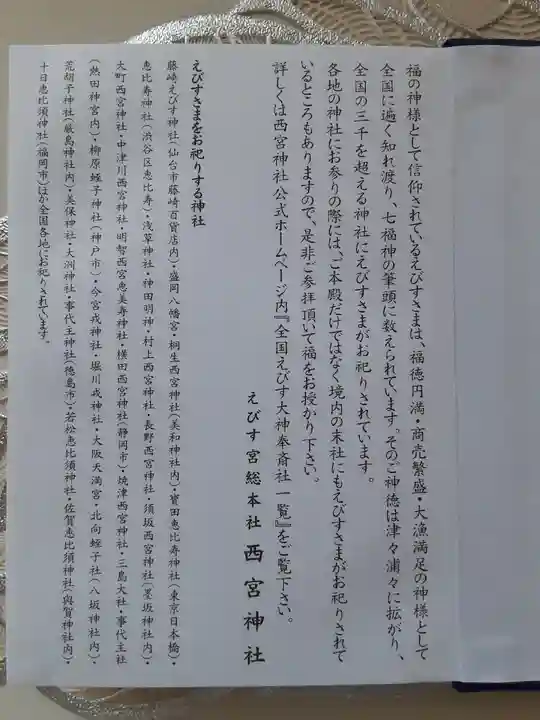 福の神様として信仰されているえびすさまは、福徳円満・商売繁盛・大漁満足の神様として
全国に遍く知れ渡り、七福神の筆頭に数えられています。そのご神徳は津々浦々に拡がり、
全国の三千を超える神社にえびすさまがお祀りされています。
各地の神社にお参りの際には、ご本殿だけではなく境内の末社にもえびすさまがお祀りされて
いるところもありますので、是非ご参拝頂いて福をお授かり下さい。
詳しくは西宮神社公式ホームページ内『全国えびす大神奉斎社一覧』をご覧下さい。
えびす宮総本社 西宮神社
えびすさまをお祀りする神社
藤崎えびす神社(仙台市藤崎百貨店内)・盛岡八幡宮・桐生西宮神社(美和神社内)・寶田恵比寿神社(東京日本橋)・
恵比寿神社(渋谷区恵比寿)・浅草神社・神田明神・村上西宮神社・長野西宮神社・須坂西宮神社(墨坂神社内)・
大町西宮神社・中津川西宮神社・明智西宮恵美寿神社・横田西宮神社(静岡市)・焼津西宮神社・三島大社・事代主社
(熱田神宮内)・柳原蛭子神社(神戸市)・今宮戎神社・堀川戎神社・大阪天満宮・北向蛭子社(八坂神社内)・
荒胡子神社(厳島神社内)・美保神社・大洲神社・事代主神社(徳島市)・若松恵比須神社・佐賀恵比須神社(與賀神社内)・
十日恵比須神社(福岡市)ほか全国各地にお祀りされています。